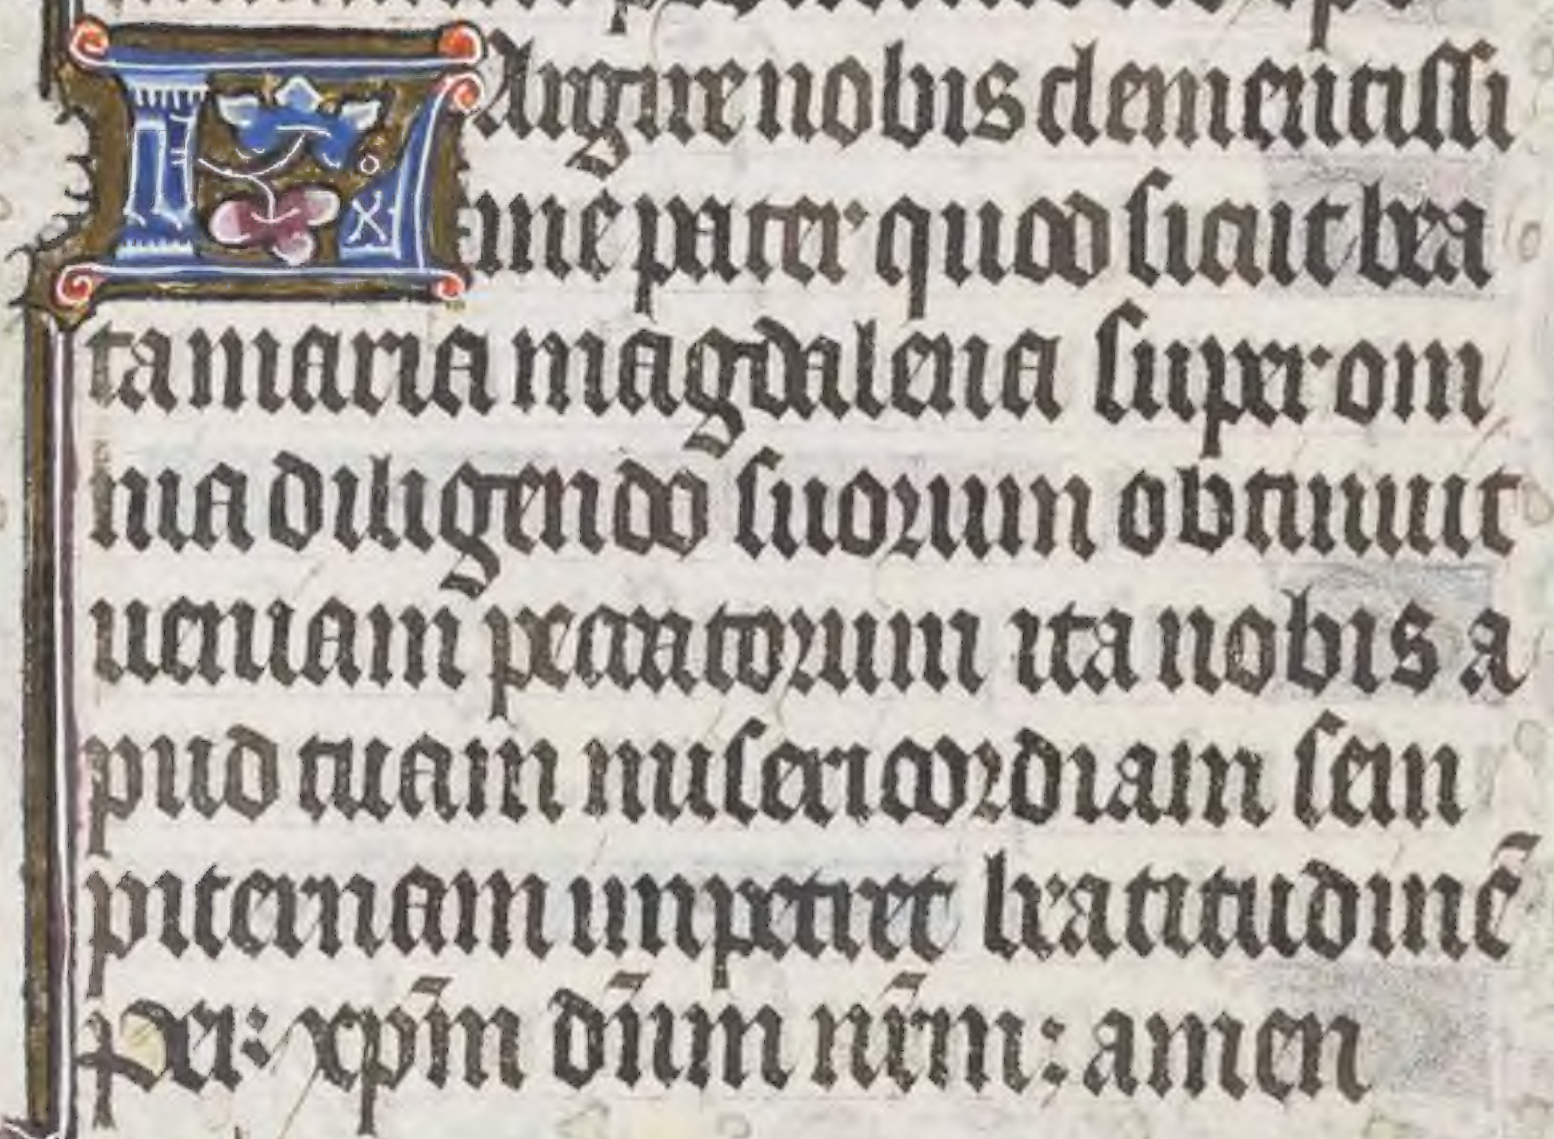 LArgire nobis clementissi
me pater quod sicut bea
ta maria magdalena super om
nia diligendo suorum obtinuit
ueniam peccatorum ita nobis a
pud tuam misericordiam sem
piternam impetret beatitudinē
per: xp̄m dn̄um nr̄m: amen